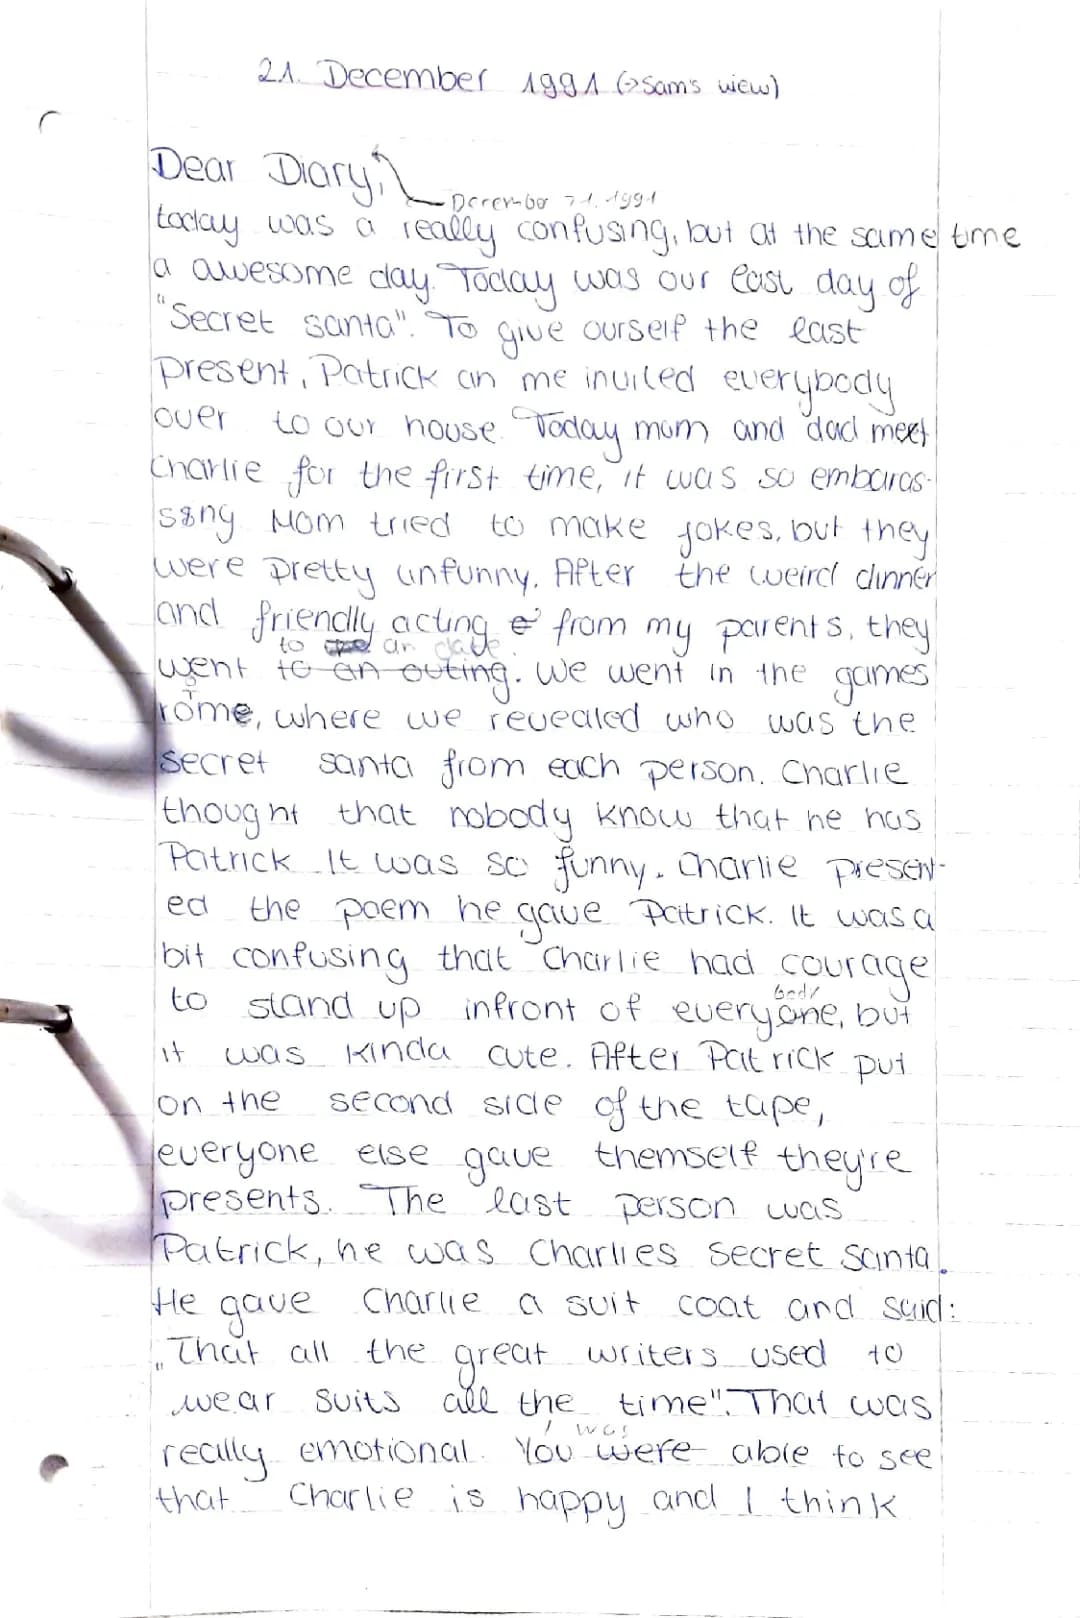 21. December 1991 (→Sam's view)
Dear Diary,
December 21. 1991
today was a really confusing, but at the same time
a awesome day. Today was our last day of
"Secret santa". To give ourself the last
present, Patrick an me invited everybody
over to our house. Today mom and dad meet
Charlie for the first time, it was so embaras-
sing. Mom tried to make jokes, but they
were pretty unfunny. After the weird dinner
and friendly acting from my parents, they
to an date
went to an outing. We went in the games
rome, where we revealed who was the
secret santa from each person. Charlie
thought that nobody know that he has
Patrick. It was so funny. Charlie present-
ed the poem he gave Patrick. It was a
bit confusing that Charlie had courage
body
to stand up infront of everyone, but
it was kinda cute. After Patrick put
on the second side of the tape,
everyone else gave themself they're
presents. The last person was
Patrick, he was Charlies secret Santa.
He gave Charlie a suit coat and said:
„That all the great writers used to
wear suits all the time". That was
I was
really emotional. You were able to see
that Charlie is happy and I think